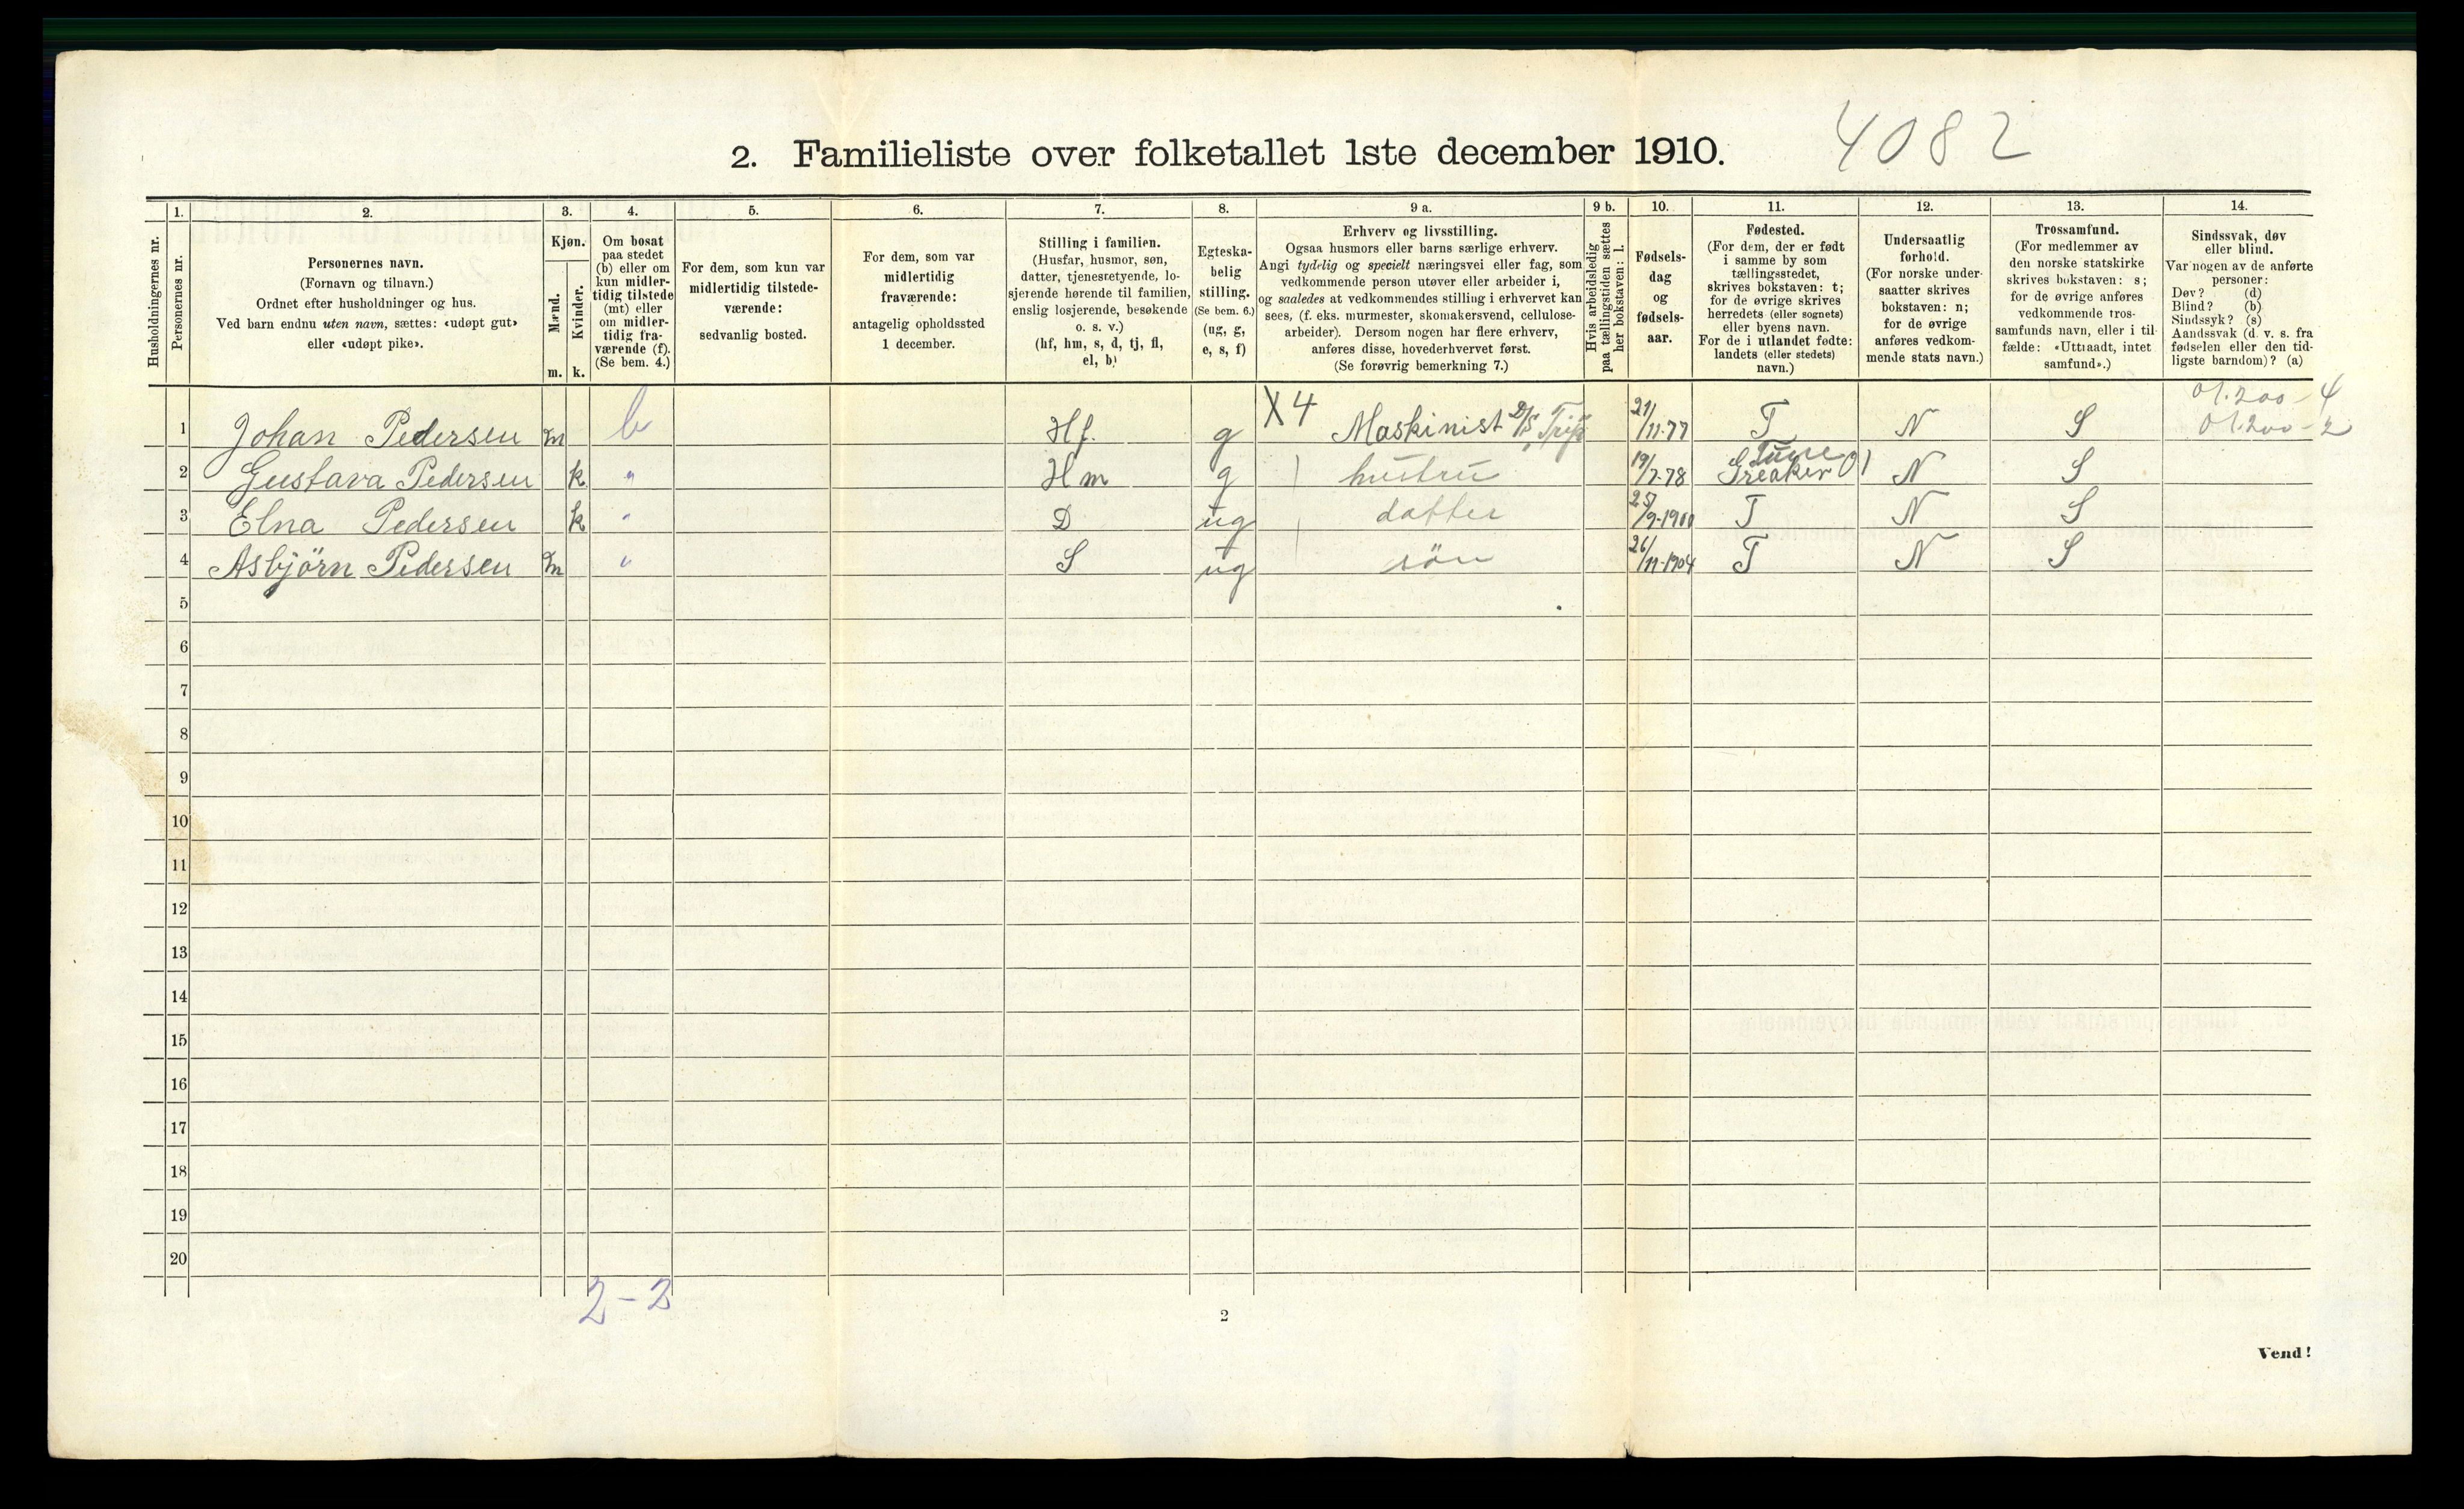 4082
2. Familieliste over folketallet 1ste december 1910.
Husholdningernes nr.
1.
Personernes nr.
2.
Personernes navn.
(Fornavn og tilnavn.)
Ordnet efter husholdninger og hus.
Ved barn endnu uten navn, sættes: «udøpt gut»
eller «udøpt pike».
3.
Kjøn.
Mænd.
Kvinder.
m. k.
4.
Om bosat
paa stedet
(b) eller om
kun midler-
tidig tilstede
(mt) eller
om midler-
tidig fra-
værende (f).
(Se bem. 4.)
5.
For dem, som kun var
midlertidig tilstede-
værende:
sedvanlig bosted.
6.
For dem, som var
midlertidig
fraværende:
antagelig opholdssted
1 december.
7.
Stilling i familien.
(Husfar, husmor, søn,
datter, tjenestetyende, lo-
sjerende hørende til familien,
enslig losjerende, besøkende
o. s. v.)
(hf, hm, s, d, tj, fl,
el, b)
8.
Egteska-
belig
stilling.
(Se bem. 6.)
(ug, g,
e, s, f)
9 a.
Erhverv og livsstilling.
Ogsaa husmors eller barns særlige erhverv.
Angi tydelig og specielt næringsvei eller fag, som
vedkommende person utøver eller arbeider i,
og saaledes at vedkommendes stilling i erhvervet kan
sees, (f. eks. murmester, skomakersvend, cellulose-
arbeider). Dersom nogen har flere erhverv,
anføres disse, hovederhvervet først.
(Se forøvrig bemerkning 7.)
9 b.
Hvis arbeidsledig
paa tællingstiden sættes
her bokstaven: l.
10.
Fødsels-
dag
og
fødsels-
aar.
11.
Fødested.
(For dem, der er født
i samme by som
tællingsstedet,
skrives bokstaven: t;
for de øvrige skrives
herredets (eller sognets)
eller byens navn.
For de i utlandet fødte:
landets (eller stedets)
navn.)
12.
Undersaatlig
forhold.
(For norske under-
saatter skrives
bokstaven: n;
for de øvrige
anføres vedkom-
mende stats navn.)
13.
Trossamfund.
(For medlemmer av
den norske statskirke
skrives bokstaven: s;
for de øvrige anføres
vedkommende tros-
samfunds navn, eller i til
fælde: «Uttraadt, intet
samfund».)
14.
Sindssvak, døv
eller blind.
Var nogen av de anførte
personer:
Døv? (d)
Blind? (b)
Sindssyk? (s)
Aandssvak (d. v. s. fra
fødselen eller den tid-
ligste barndom)? (a)
01.200 - 4
01.200 - 2
1 Johan Pedersen m b Hf. g X4 Maskinist D/S 21/11-77 T N S
2 Gustava Pedersen k " Hm g hustru 19/7-78 Tune Greaker 01 N S
3 Elna Pedersen k " D ug datter 25/9-1900 T N S
4 Asbjörn Pedersen m " S ug sön 26/11-1904 T N S
5
6
7
8
9
10
11
12
13
14
15
16
17
18
19
20
2-2
2
Vend!